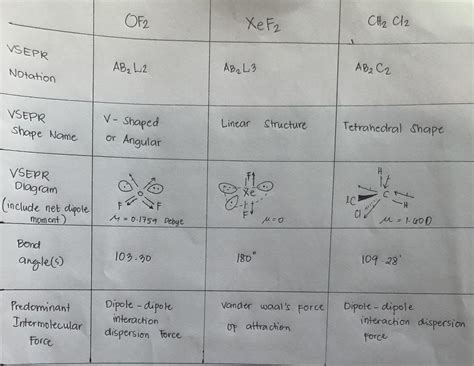 OF2 XeF2 CH2 Cl2
VSEPR
Notation
AB2L2 AB2L3 AB2C2
VSEPR
Shape Name
V-Shaped
or Angular
Linear Structure
Tetrahedral Shape
VSEPR
Diagram
(include net dipole
moment)
O
F F
μ = 0.1759 Debye
F
Xe
F
μ=0
H
C H
Cl
μ = 1.40D
Bond
angle(s)
103.30 180° 109.28'
Predominant
Intermolecular
Force
Dipole-dipole
interaction
dispersion Force
Vander waal's Force
of attraction
Dipole-dipole
interaction dispersion
force